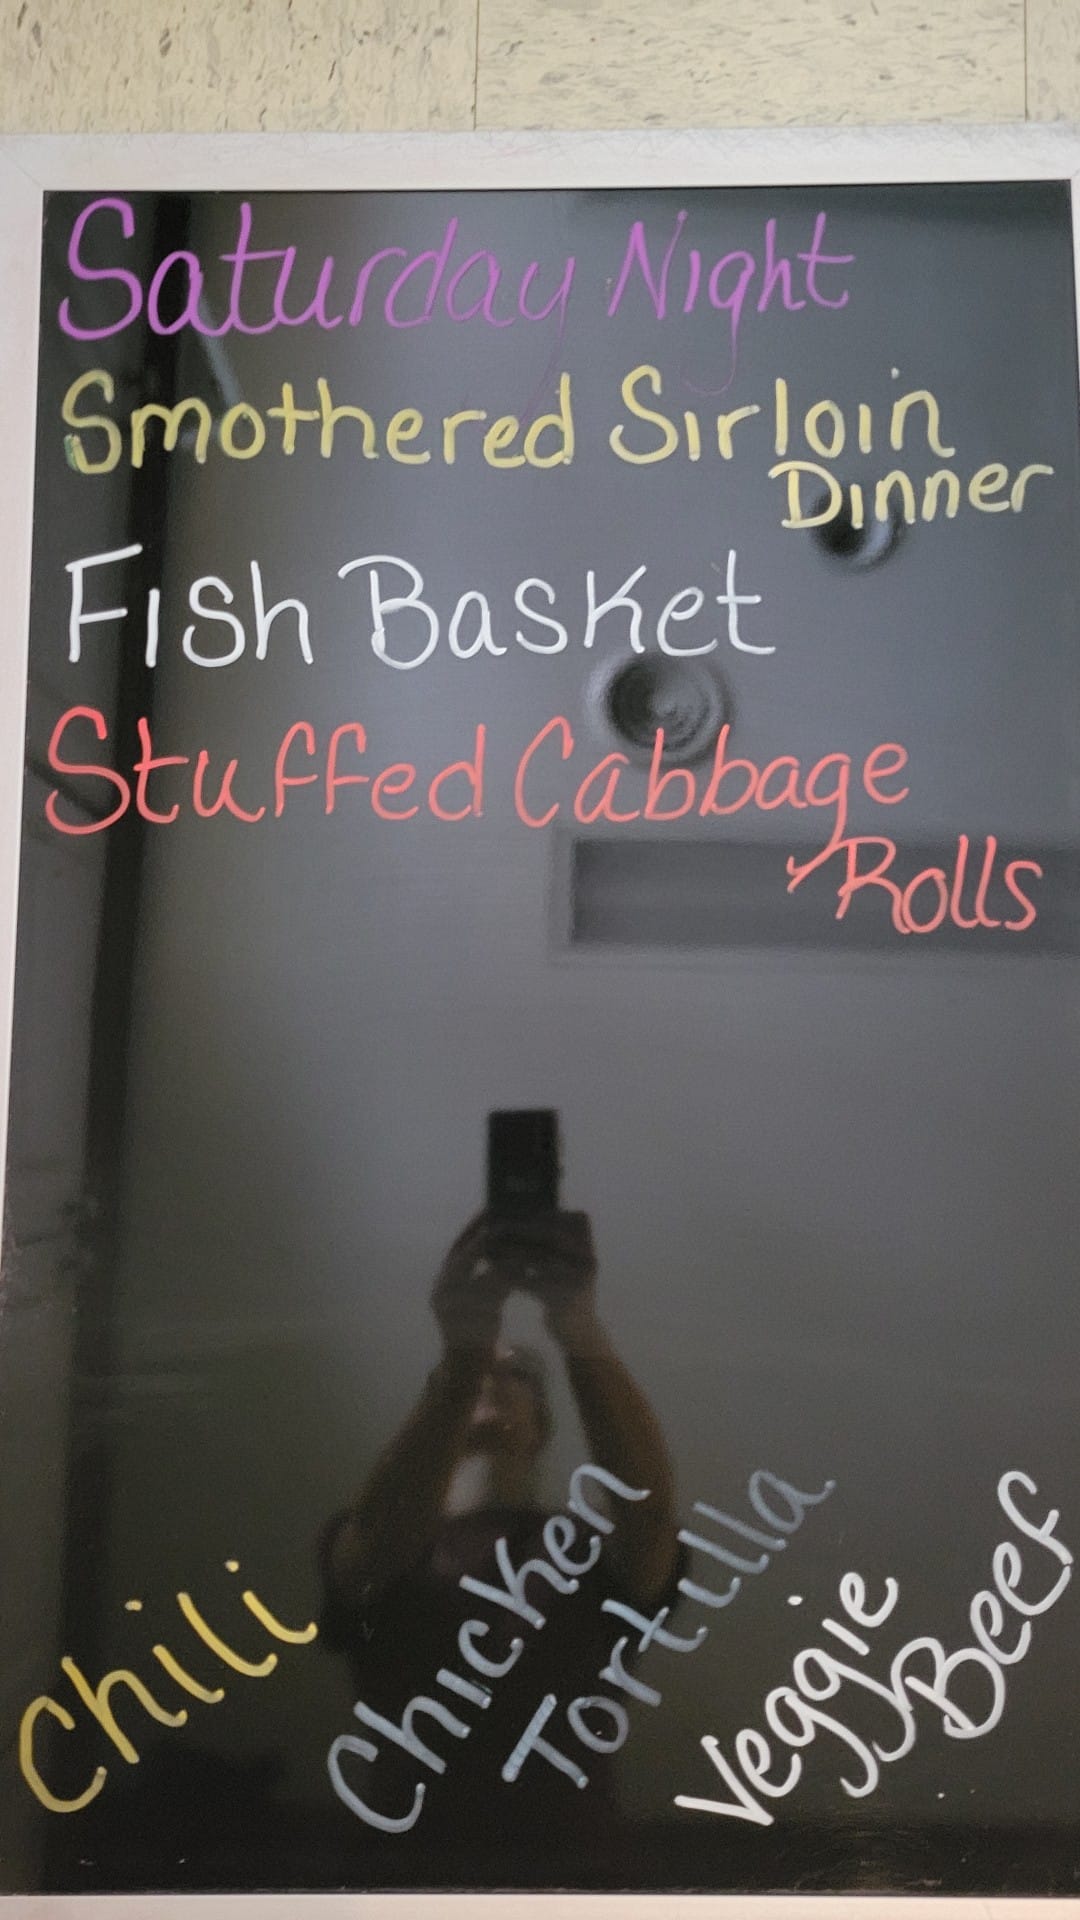 Saturday Night
Smothered Sirloin
Dinner
Fish Basket
Stuffed Cabbage
Rolls
Chili
Chicken
Tortilla
Veggie
Beef